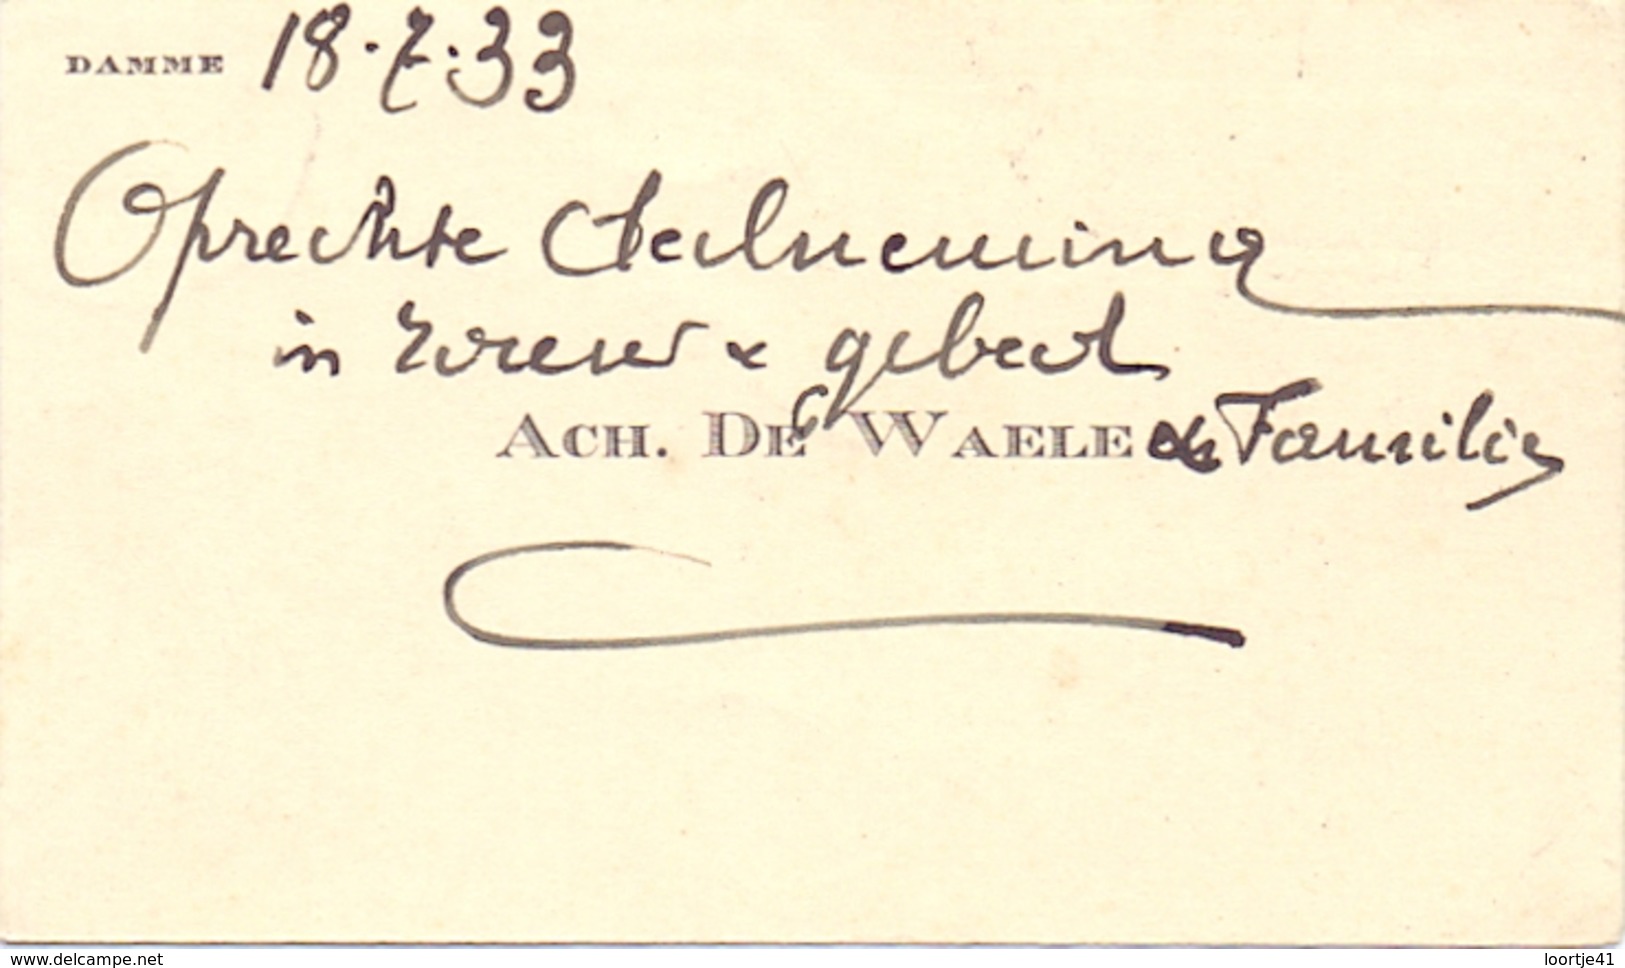 DAMME 18.7.33
Oprechte deelneming
in rouw & gebed
ACH. DE WAELE & Familie
www.delcampe.net loortje41